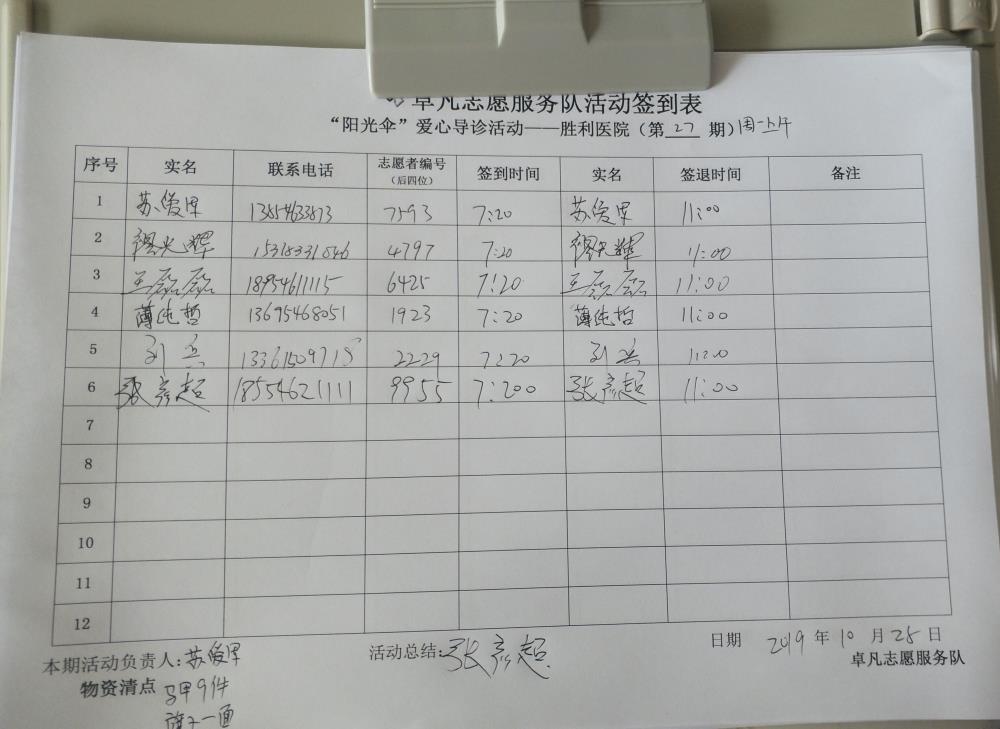 卓凡志愿服务队活动签到表
“阳光伞”爱心导诊活动——胜利医院（第 27 期）周一上午
序号 实名 联系电话 志愿者编号（后四位） 签到时间 实名 签退时间 备注
1 苏爱军 13854633873 7593 7:20 苏爱军 11:00
2 光辉 15318331846 4797 7:20 光辉 11:00
3 王磊磊 18954611115 6425 7:20 王磊磊 11:00
4 薄纯哲 13695468051 1923 7:20 薄纯哲 11:00
5 刘兵 13361509718 2229 7:20 刘兵 11:00
6 张彦超 18554621111 9955 7:200 张彦超 11:00
7
8
9
10
11
12
本期活动负责人:苏爱军 活动总结:张彦超 日期 2019 年 10 月 28 日
卓凡志愿服务队
物资清点 马甲9件
旗子一面